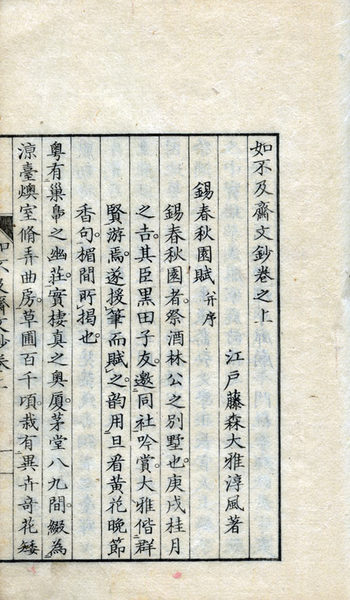 如不及齋文鈔卷之上
江戸藤森大雅淳風著
錫春秋園賦并序
錫春秋園者。祭酒林公之別墅也。庚戌桂月
之吉。其臣黒田子友。邀同社吟賞。大雅偕群
賢游焉。遂援筆而賦之。韵用且看黄花晚節
香句。楣間所揭也。
粤有巢鳧之幽莊。實棲真之奥厦。茅堂八九間。綴為
涼臺燠室。脩弄曲房。草圃百千頃。栽有異卉奇花。矮
如不及齋文鈔卷上